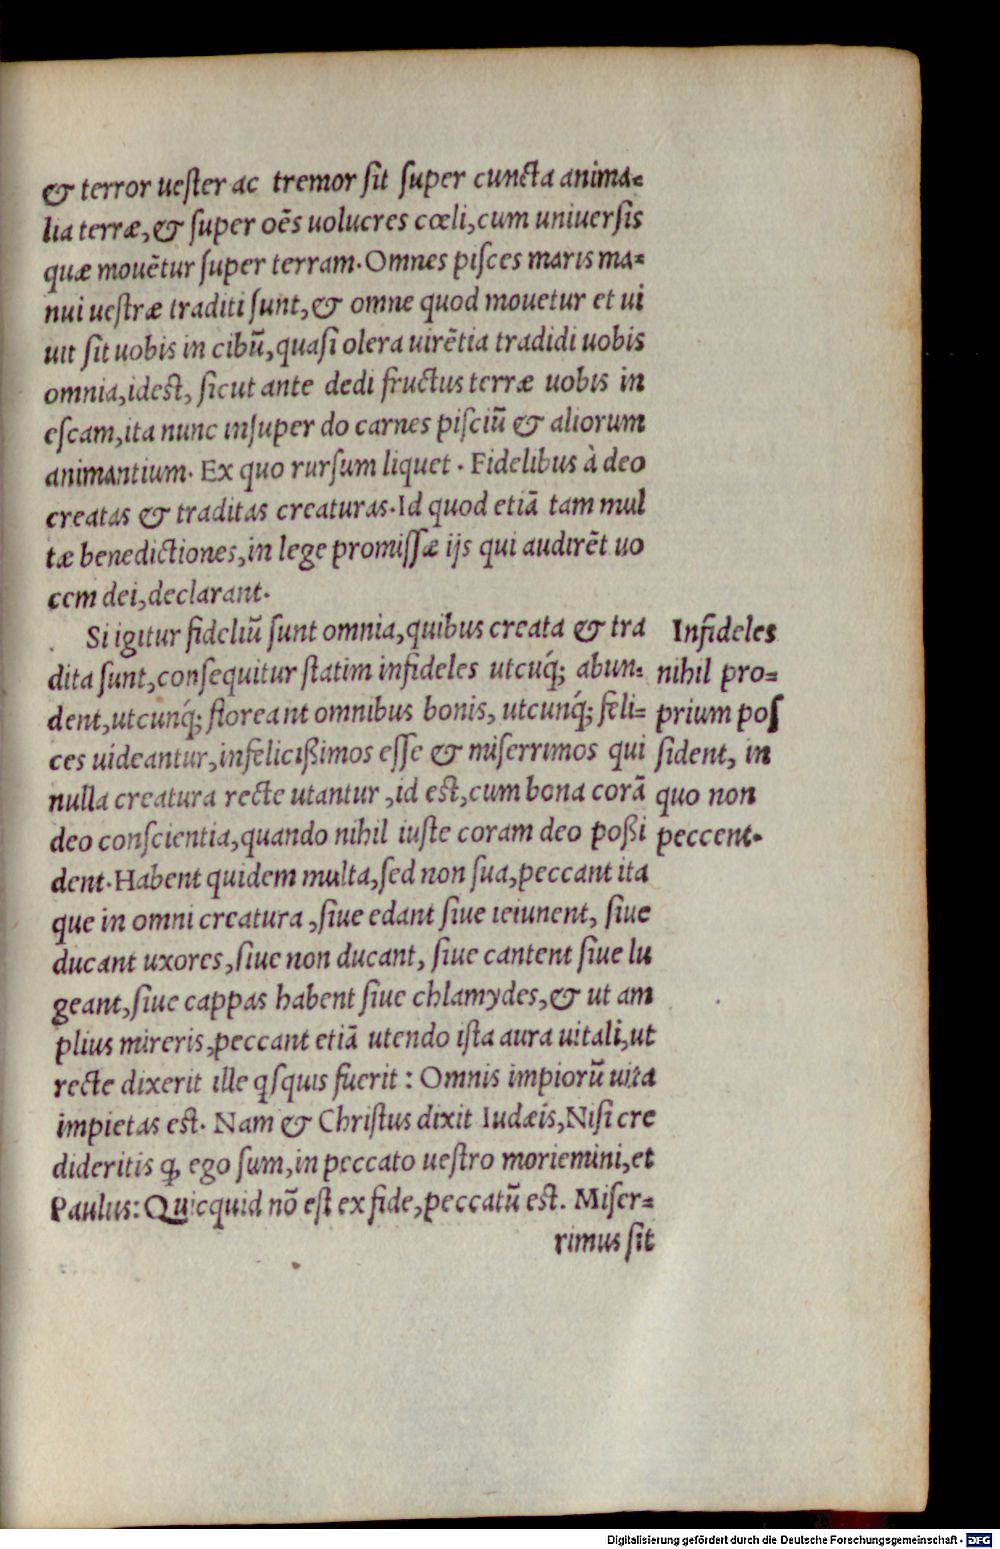 & terror uester ac tremor sit super cuncta anima-
lia terræ, & super oēs uolucres cœli, cum uniuersis
quæ mouētur super terram. Omnes pisces maris ma-
nui uestræ traditi sunt, & omne quod mouetur et ui
uit sit uobis in cibū, quasi olera uirētia tradidi uobis
omnia, idest, sicut ante dedi fructus terræ uobis in
escam, ita nunc insuper do carnes pisciū & aliorum
animantium. Ex quo rursum liquet. Fidelibus à deo
creatas & traditas creaturas. Id quod etiā tam mul
tæ benedictiones, in lege promissæ ijs qui audirēt uo
cem dei, declarant.
Si igitur fideliū sunt omnia, quibus creata & tra
dita sunt, consequitur statim infideles utcuq́; abun-
dent, utcunq́; floreant omnibus bonis, utcunq́; feli-
ces uideantur, infelicißimos esse & miserrimos qui
nulla creatura recte utantur, id est, cum bona corā
deo conscientia, quando nihil iuste coram deo poßi
dent. Habent quidem multa, sed non sua, peccant ita
que in omni creatura, siue edant siue ieiunent, siue
ducant uxores, siue non ducant, siue cantent siue lu
geant, siue cappas habent siue chlamydes, & ut am
plius mireris, peccant etiā utendo ista aura uitali, ut
recte dixerit ille qsquis fuerit: Omnis impiorū uita
impietas est. Nam & Christus dixit Iudæis, Nisi cre
dideritis ꝙ ego sum, in peccato uestro moriemini, et
Paulus: Quicquid nō est ex fide, peccatū est. Miser-
rimus sit
Infideles
nihil pro-
prium pos
sident, in
quo non
peccent.
Digitalisierung gefördert durch die Deutsche Forschungsgemeinschaft - DFG